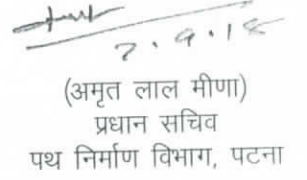 7.9.18
(अमृत लाल मीणा)
प्रधान सचिव
पथ निर्माण विभाग, पटना